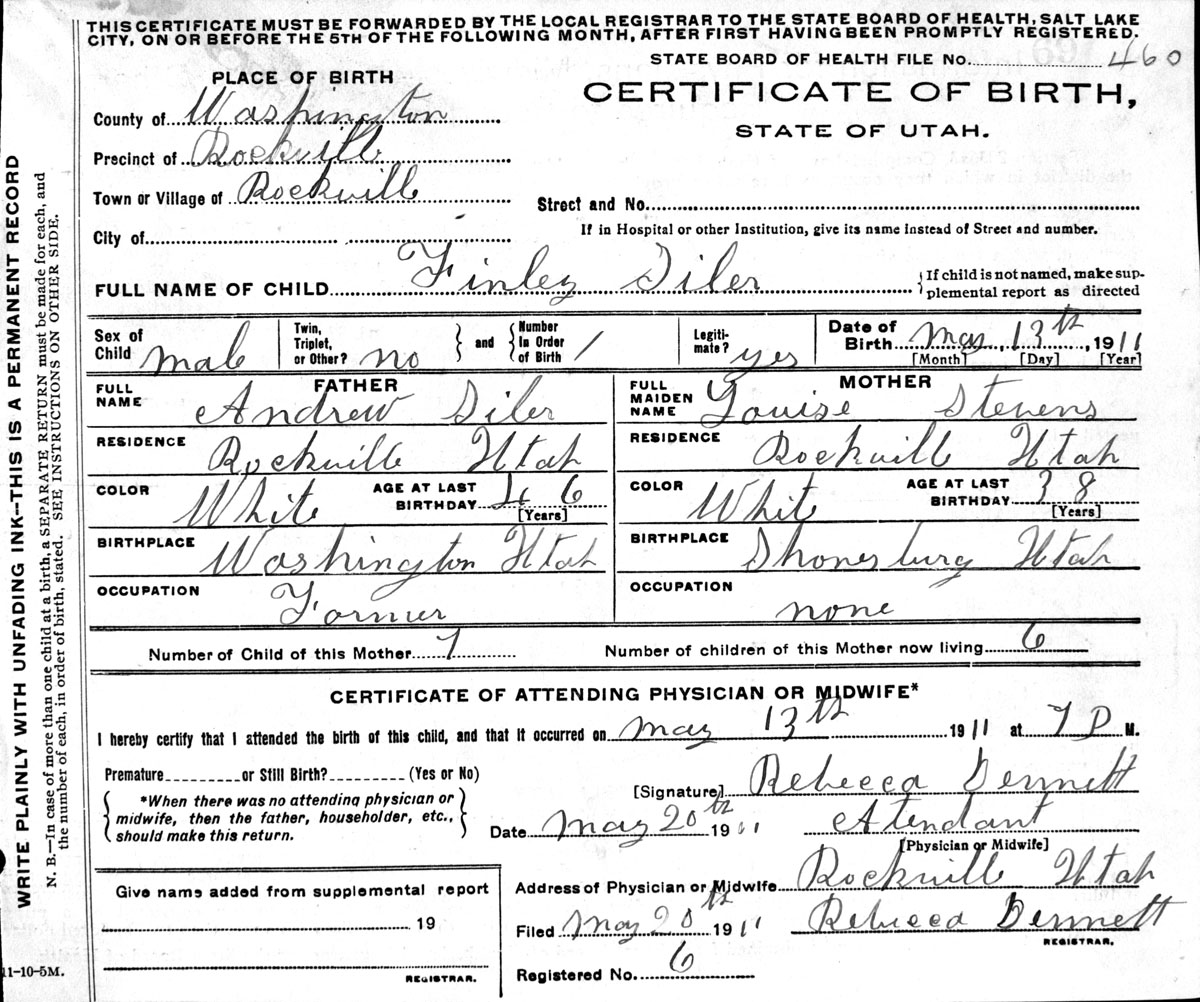 THIS CERTIFICATE MUST BE FORWARDED BY THE LOCAL REGISTRAR TO THE STATE BOARD OF HEALTH, SALT LAKE
CITY, ON OR BEFORE THE 5TH OF THE FOLLOWING MONTH, AFTER FIRST HAVING BEEN PROMPTLY REGISTERED.
STATE BOARD OF HEALTH FILE No. 460
PLACE OF BIRTH
CERTIFICATE OF BIRTH,
STATE OF UTAH.
County of Washington
Precinct of Rockville
Town or Village of Rockville
Street and No.
City of
If in Hospital or other Institution, give its name instead of Street and number.
FULL NAME OF CHILD Finley Siler
{If child is not named, make sup-
plemental report as directed
Sex of
Child Male
Twin,
Triplet,
or Other? no
} and {
Number
In Order
of Birth 1
Legiti-
mate? yes
Date of
Birth May, 13th, 1911
[Month] [Day] [Year]
FATHER
FULL
NAME Andrew Siler
RESIDENCE Rockville Utah
COLOR White
AGE AT LAST
BIRTHDAY 46
[Years]
BIRTHPLACE Washington Utah
OCCUPATION Farmer
MOTHER
FULL
MAIDEN
NAME Louise Stevens
RESIDENCE Rockville Utah
COLOR White
AGE AT LAST
BIRTHDAY 38
[Years]
BIRTHPLACE Shonesburg Utah
OCCUPATION none
Number of Child of this Mother 7
Number of children of this Mother now living 6
CERTIFICATE OF ATTENDING PHYSICIAN OR MIDWIFE*
I hereby certify that I attended the birth of this child, and that it occurred on May 13th 1911 at 7 P M.
Premature or Still Birth? (Yes or No)
{*When there was no attending physician or
midwife, then the father, householder, etc.,
should make this return.}
[Signature] Rebecca Dennett
Date May 20th 1911 Atendant
[Physician or Midwife]
Address of Physician or Midwife Rockville Utah
Give name added from supplemental report
19
REGISTRAR.
Filed May 20th 1911 Rebecca Dennett
REGISTRAR.
Registered No. 6
11-10-5M.
WRITE PLAINLY WITH UNFADING INK--THIS IS A PERMANENT RECORD
N. B.—In case of more than one child at a birth, a SEPARATE RETURN must be made for each, and
the number of each, in order of birth, stated. SEE INSTRUCTIONS ON OTHER SIDE.